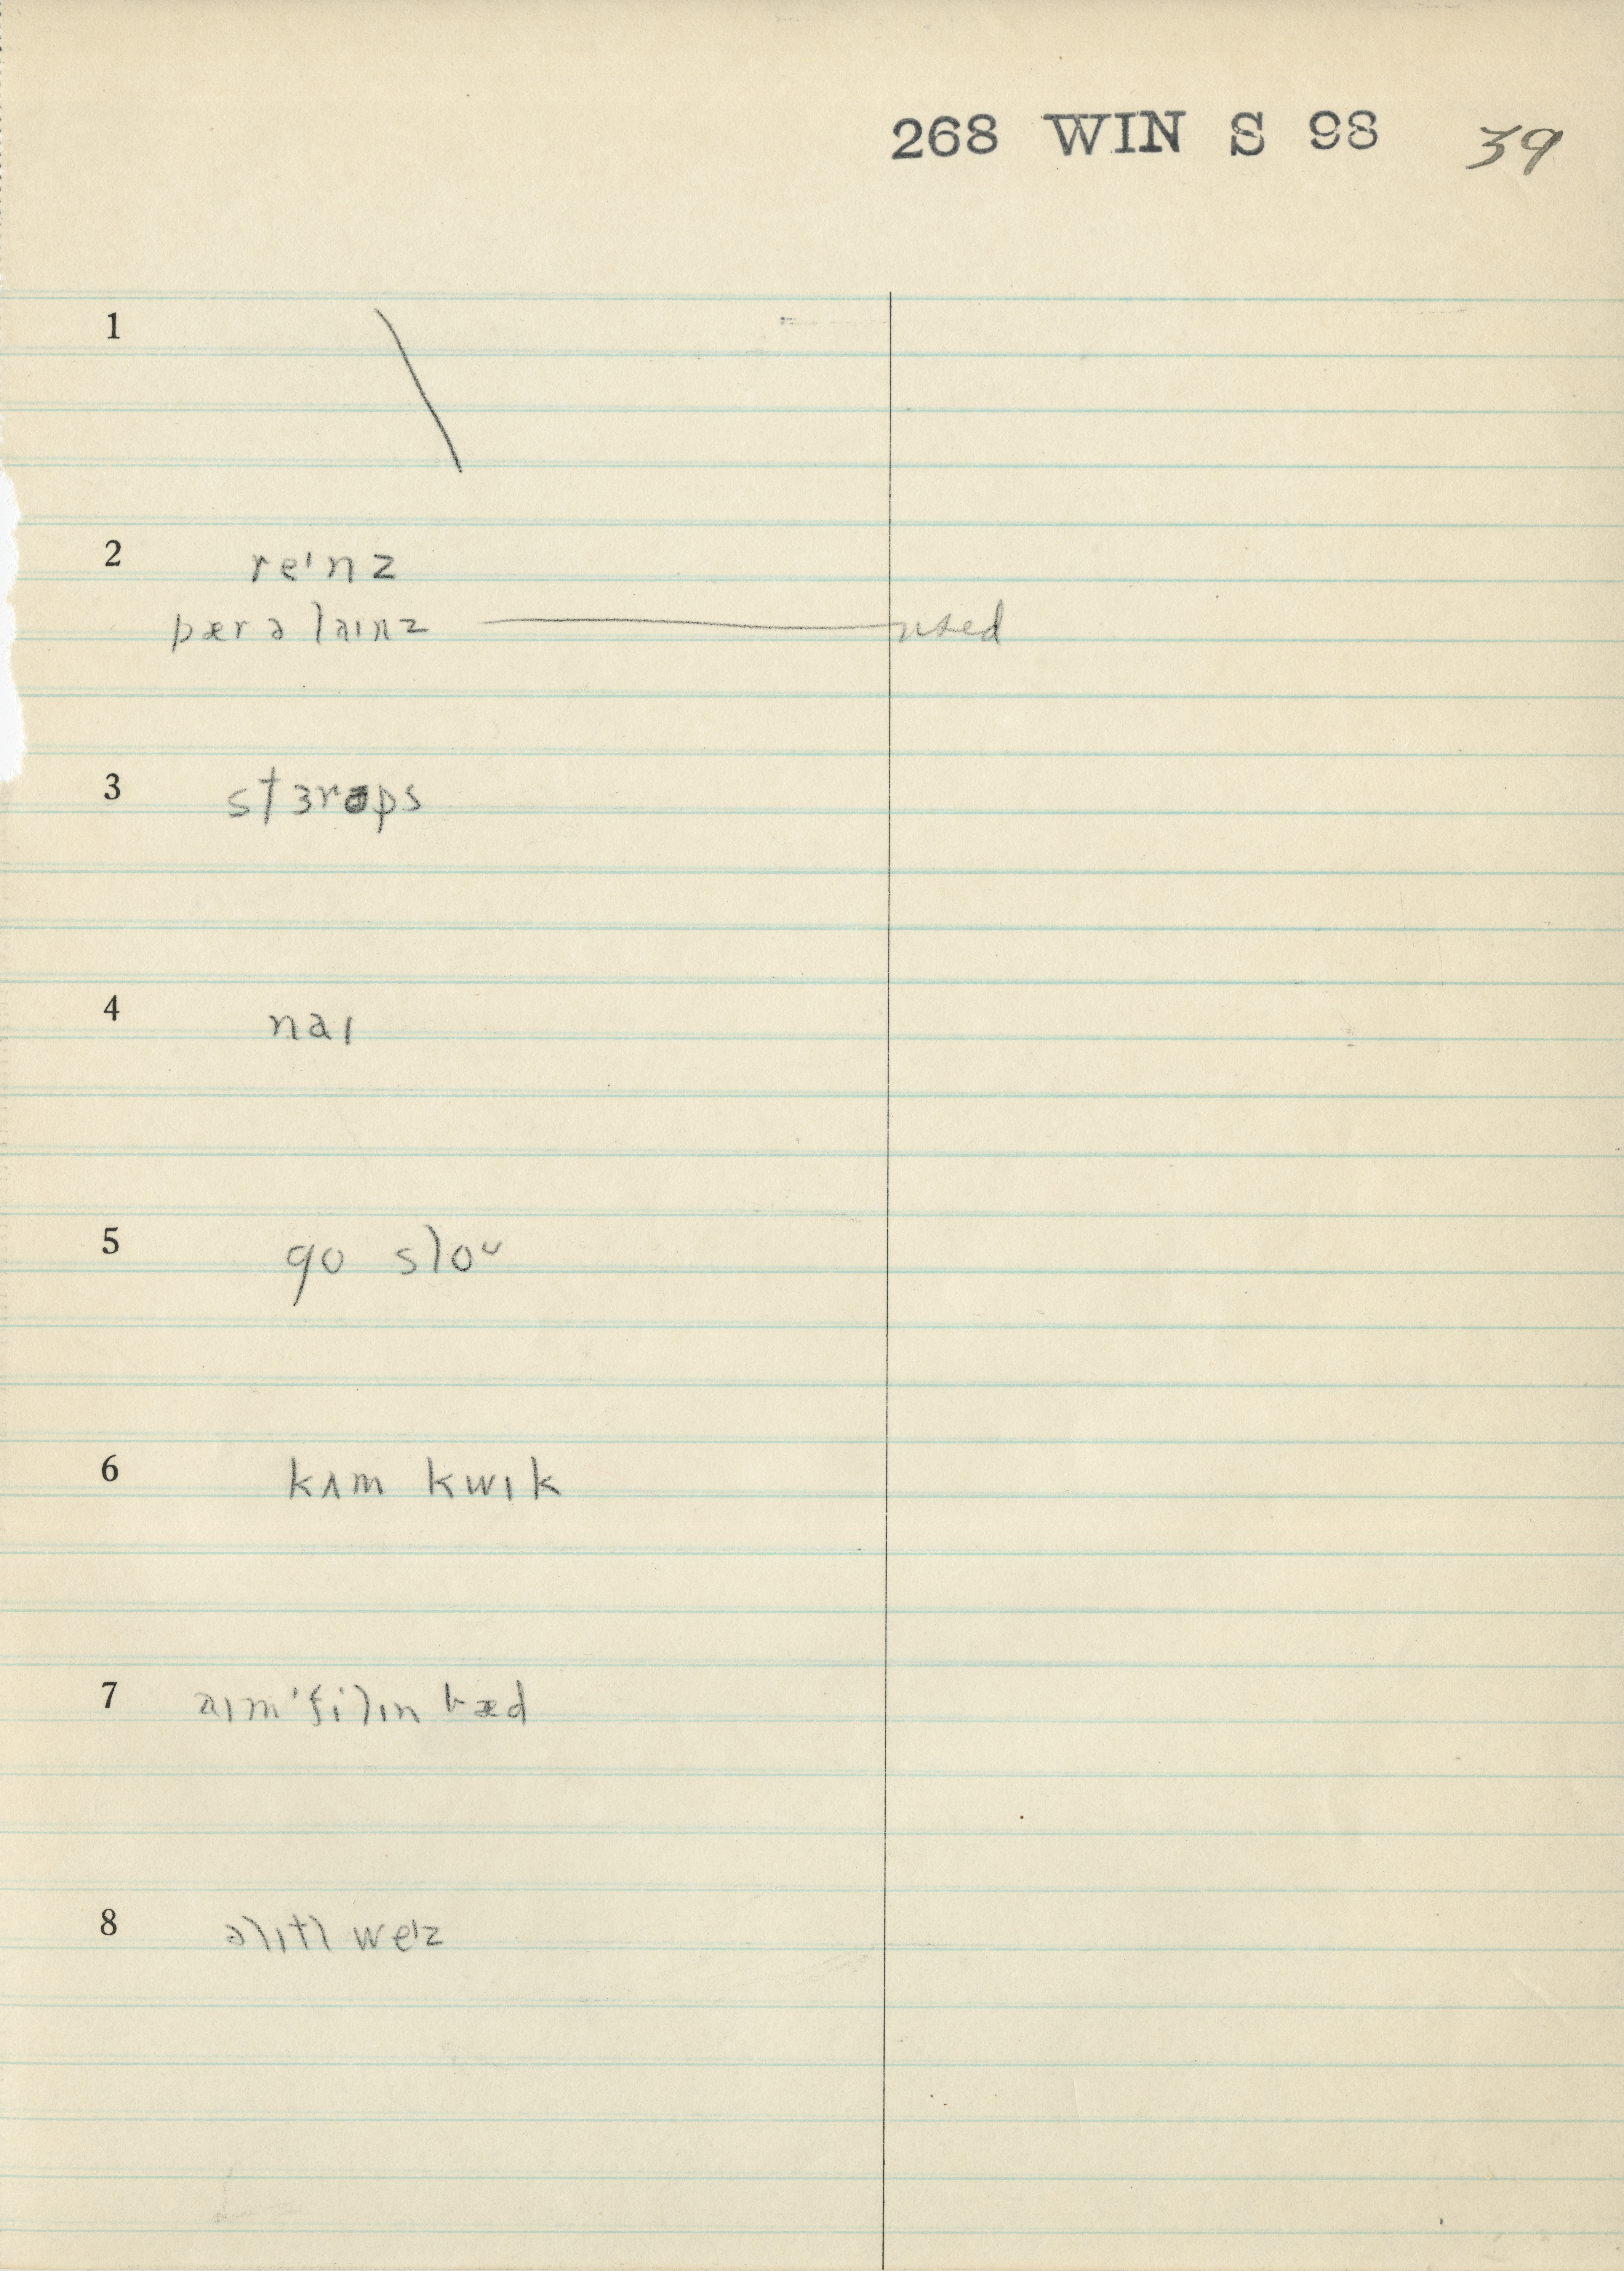 268 WIN S 98 39
1 \
2 reᶦnz
pær ə laɪnz — used
3 stɜrəps
4 naɪ
5 go sloᶷ
6 kʌm kwɪk
7 aɪm ˈfilɪn bæd
8 əlɪtl weᶦz